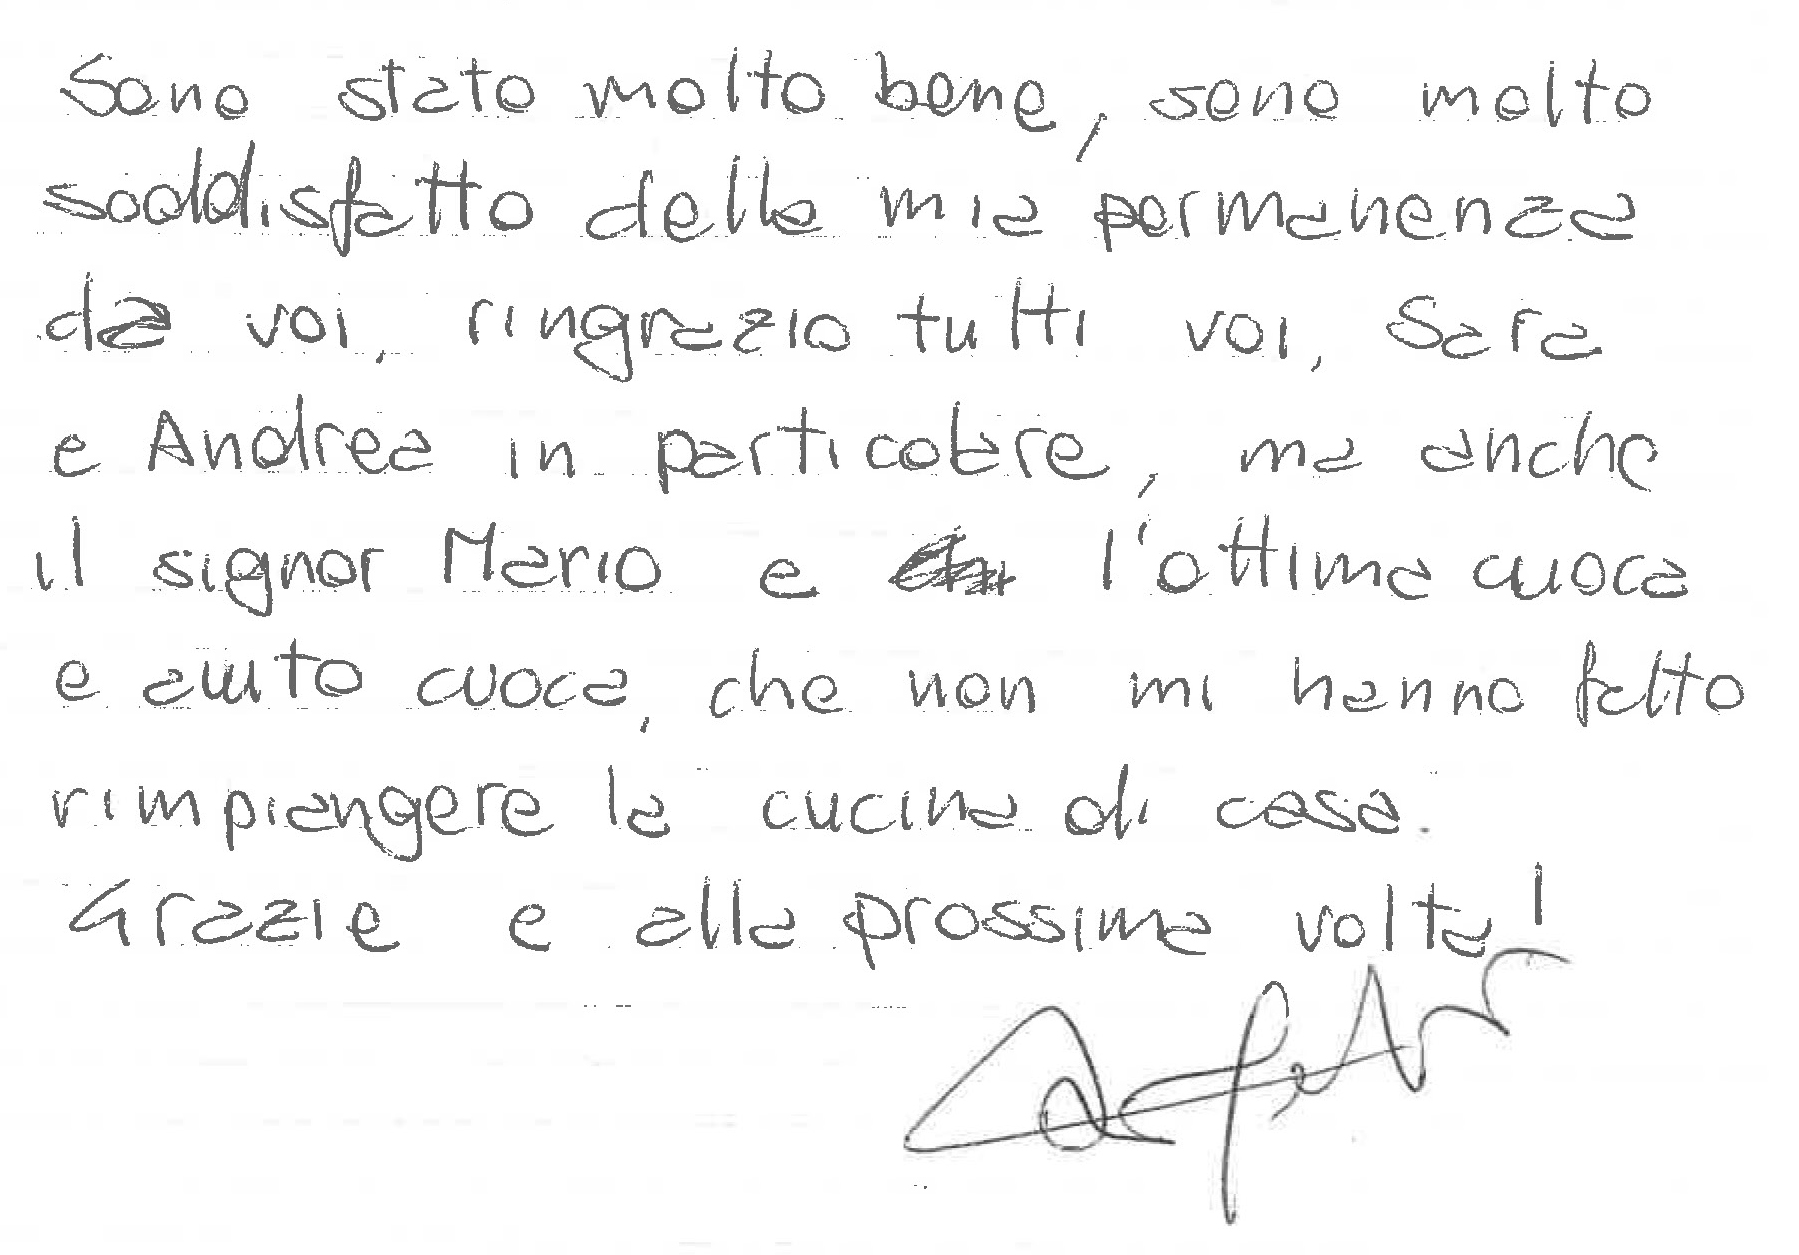 Sono stato molto bene, sono molto
soddisfatto della mia permanenza
da voi, ringrazio tutti voi, Sara
e Andrea in particolare, ma anche
il signor Mario e l'ottima cuoca
e aiuto cuoca, che non mi hanno fatto
rimpiangere la cucina di casa.
Grazie e alla prossima volta!